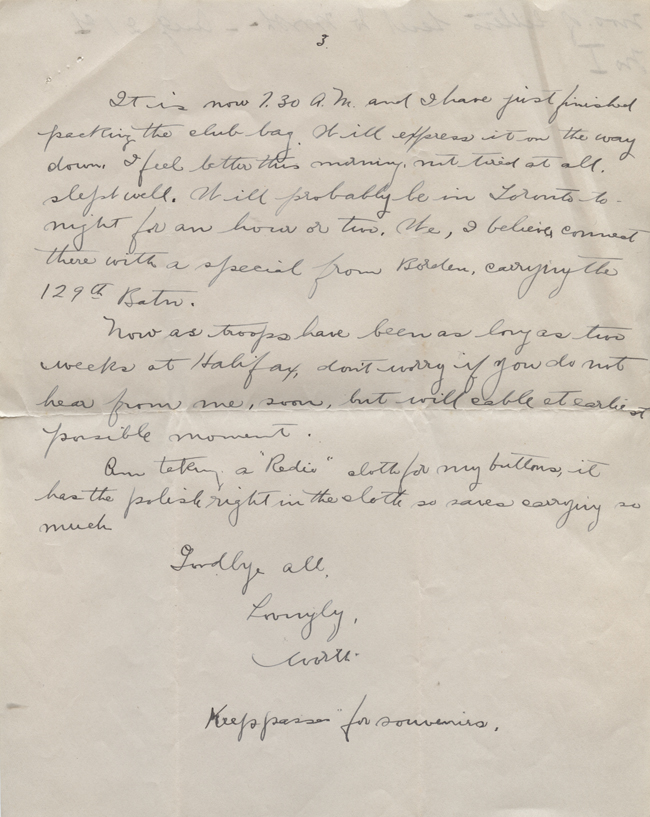 3
It is now 7.30 A.M. and I have just finished
packing the club bag. Will express it on the way
down. I feel better this morning, not tired at all.
slept well. Will probably be in Toronto to-
night for an hour or two. We, I believe, connect
there with a special from Borden, carrying the
129th Batn.
Now as troops have been as long as two
weeks at Halifax, don't worry if you do not
hear from me, soon, but will cable at earliest
possible moment.
Am taking a "Redio" cloth for my buttons, it
has the polish right in the cloth so saves carrying so
much
Goodbye all,
Lovingly,
Worth.
Keep passes" for souvenirs.